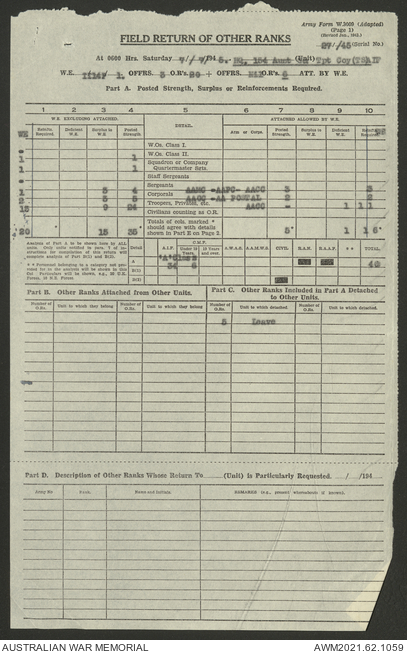 Army Form W.3009 (Adapted)
(Page 1)
FIELD RETURN OF OTHER RANKS
27/45 (Serial No.)
At 0600 Hrs. Saturday 7/7/1945. HQ, 154 Gen Tpt Coy (Unit)
W.E. OFFRS. 3 O.R's. 20 + OFFRS. Nil O.R's. ATT. BY W.E.
Part A. Posted Strength, Surplus or Reinforcements Required.
1 2 3 4 5 6 7 8 9 10
W.E. EXCLUDING ATTACHED. ATTACHED ALLOWED BY W.E.
Reints. Required. Deficient W.E. Surplus to W.E. Posted Strength. DETAIL. Arm or Corps. Posted Strength. Surplus to W.E. Deficient W.E. Reints. Required.
W.Os. Class I.
1 W.Os. Class II. 1
1 Squadron or Company Quartermaster Sets. 1
Staff Sergeants
1 3 4 Sergeants AAMC -AAPC- AACC 3 3
2 3 5 Corporals AAOC -AA POSTAL 2 2
15 9 24 Troopers, Privates, etc. AACC - 1 1 1
Civilians counting as O.R.
20 15 35 Totals of cols. marked * should agree with details shown in Part E on Page 2. 5* 1 1 6*
Analysis of Part A to be shown here by ALL units. Detail A.I.F. C.M.F. A.W.A.S. A.A.M.W.S. CIVIL R.A.N. R.A.A.F. * * TOTAL.
A 34 6 40
B(i)
B(ii)
Part B. Other Ranks Attached from Other Units. Part C. Other Ranks Included in Part A Detached to Other Units.
Number of O.Rs. Unit to which they belong Number of O.Rs. Unit to which they belong Number of O.Rs. Unit to which detached. Number of O.Rs. Unit to which detached.
5 Leave
Part D. Description of Other Ranks Whose Return To (Unit) is Particularly Requested. / /194
Army No. Rank. Name and Initials. REMARKS (e.g., present whereabouts if known).
AUSTRALIAN WAR MEMORIAL AWM2021.62.1059